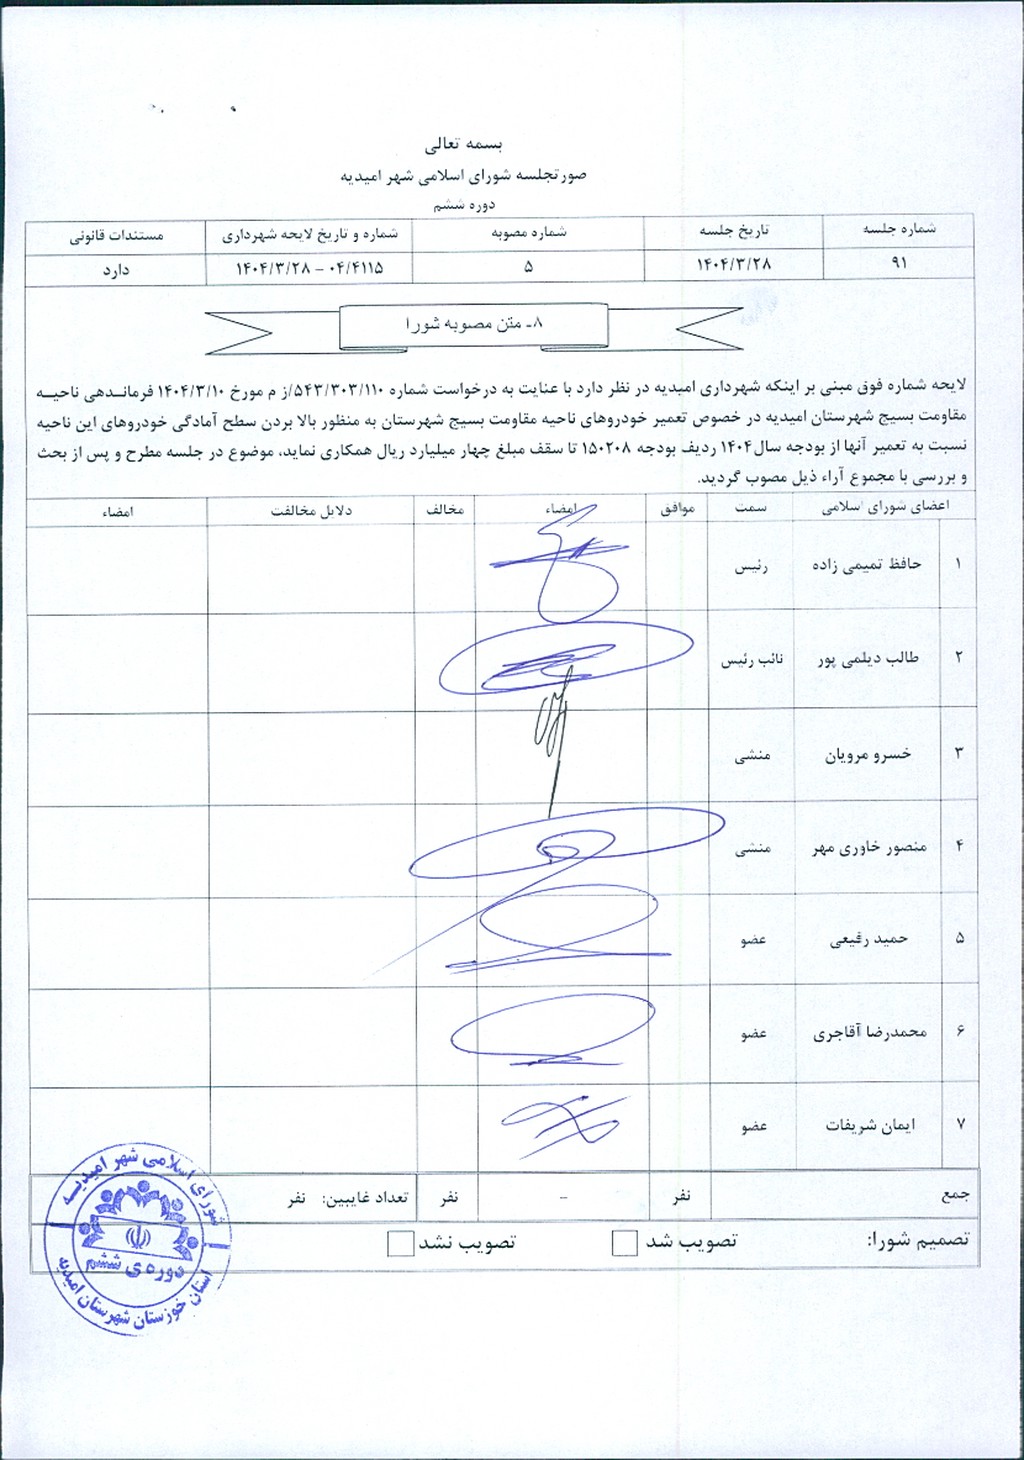 بسمه تعالی
صورتجلسه شورای اسلامی شهر امیدیه
دوره ششم
شماره جلسه تاریخ جلسه شماره مصوبه شماره و تاریخ لایحه شهرداری مستندات قانونی
۹۱ ۱۴۰۴/۳/۲۸ ۵ ۰۴/۴۱۱۵ – ۱۴۰۴/۳/۲۸ دارد
۸- متن مصوبه شورا
لایحه شماره فوق مبنی بر اینکه شهرداری امیدیه در نظر دارد با عنایت به درخواست شماره ۵۴۳/۳۰۳/۱۱۰/ز م مورخ ۱۴۰۴/۳/۱۰ فرماندهی ناحیه
مقاومت بسیج شهرستان امیدیه در خصوص تعمیر خودروهای ناحیه مقاومت بسیج شهرستان به منظور بالا بردن سطح آمادگی خودروهای این ناحیه
نسبت به تعمیر آنها از بودجه سال۱۴۰۴ ردیف بودجه ۱۵۰۲۰۸ تا سقف مبلغ چهار میلیارد ریال همکاری نماید، موضوع در جلسه مطرح و پس از بحث
و بررسی با مجموع آراء ذیل مصوب گردید.
اعضای شورای اسلامی سمت موافق امضاء مخالف دلایل مخالفت امضاء
۱ حافظ تمیمی زاده رئیس
۲ طالب دیلمی پور نائب رئیس
۳ خسرو مرویان منشی
۴ منصور خاوری مهر منشی
۵ حمید رفیعی عضو
۶ محمدرضا آقاجری عضو
۷ ایمان شریفات عضو
جمع نفر – نفر تعداد غایبین: نفر
تصمیم شورا: تصویب شد تصویب نشد
شورای اسلامی شهر امیدیه
دوره ی ششم
استان خوزستان شهرستان امیدیه